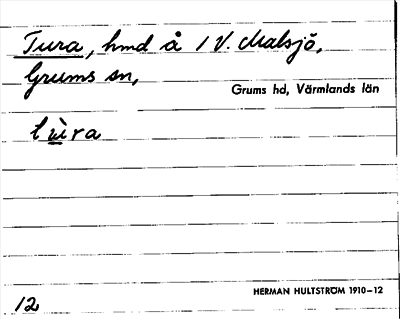 Tura, hmd å 1 V. Malsjö,
Grums sn,
Grums hd, Värmlands län
tùra
HERMAN HULTSTRÖM 1910–12
12